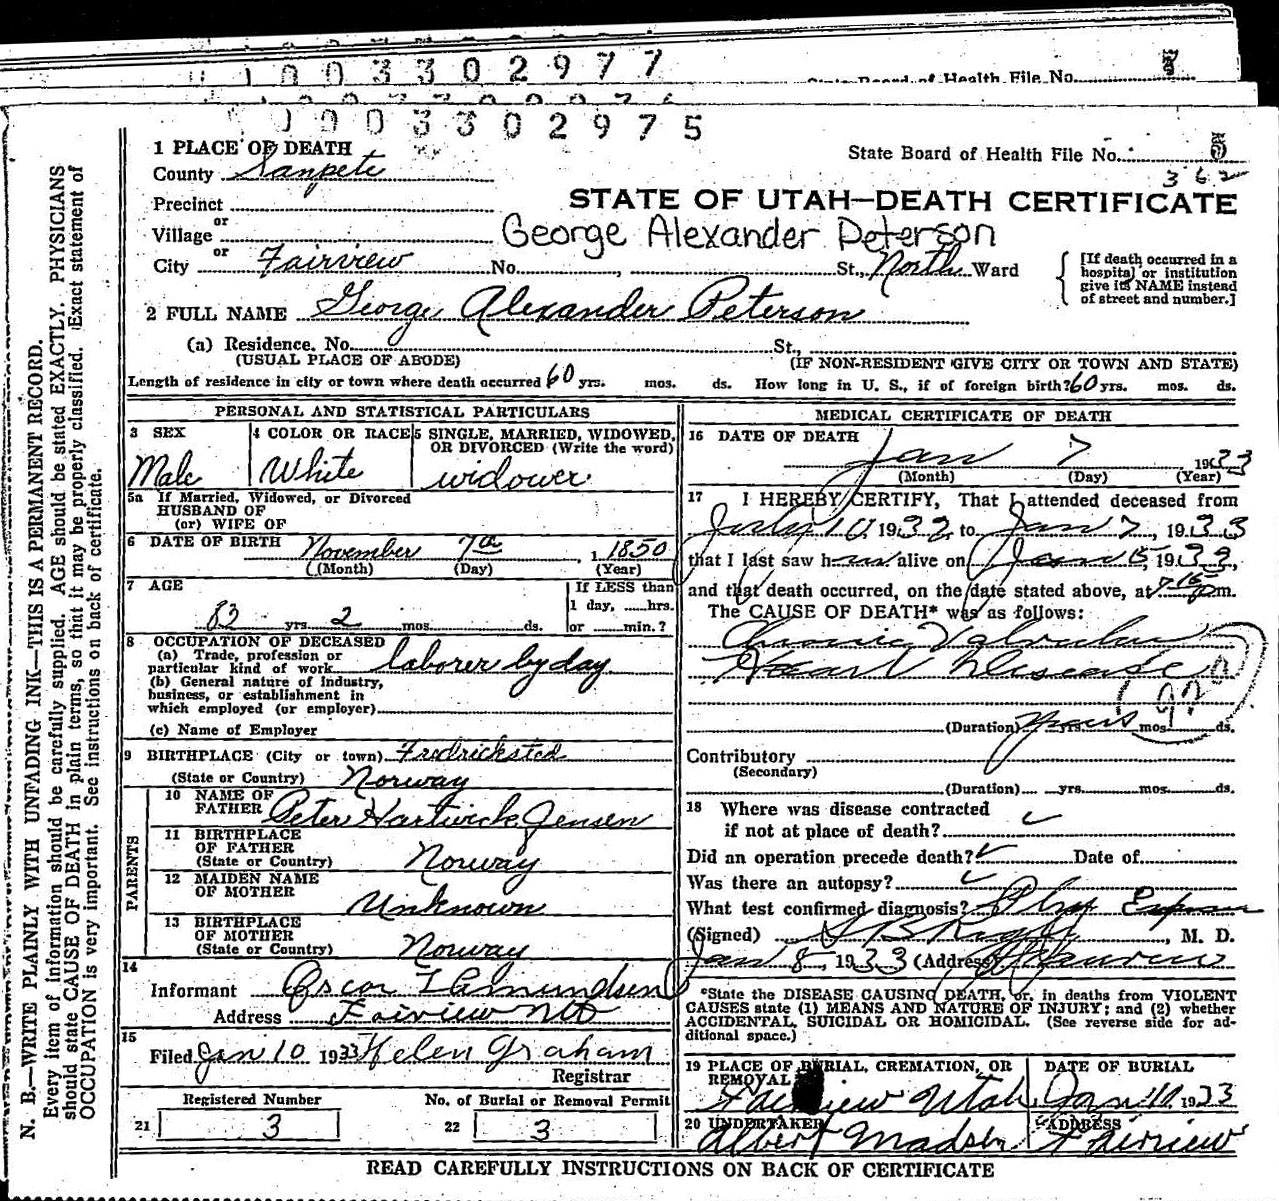 1 0 0 3 3 0 2 9 7 7
State Board of Health File No.
1 0 0 3 3 0 2 9 7 5
1 PLACE OF DEATH
County Sanpete
State Board of Health File No. 5
362
STATE OF UTAH—DEATH CERTIFICATE
Precinct
or
Village
George Alexander Peterson
or
City Fairview No. , St., North Ward
[If death occurred in a hospital or institution give its NAME instead of street and number.]
2 FULL NAME George Alexander Peterson
(a) Residence. No. St.,
(USUAL PLACE OF ABODE) (IF NON-RESIDENT GIVE CITY OR TOWN AND STATE)
Length of residence in city or town where death occurred 60 yrs. mos. ds. How long in U. S., if of foreign birth? 60 yrs. mos. ds.
PERSONAL AND STATISTICAL PARTICULARS
3 SEX
Male
4 COLOR OR RACE
White
5 SINGLE, MARRIED, WIDOWED, OR DIVORCED (Write the word)
widower
5a If Married, Widowed, or Divorced
HUSBAND OF
(or) WIFE OF
6 DATE OF BIRTH November 7th, 1 1850
(Month) (Day) (Year)
7 AGE
82 yrs. 2 mos. ds.
If LESS than
1 day, hrs.
or min.?
8 OCCUPATION OF DECEASED
(a) Trade, profession or
particular kind of work laborer by day
(b) General nature of Industry,
business, or establishment in
which employed (or employer)
(c) Name of Employer
9 BIRTHPLACE (City or town) Fredricksted
(State or Country) Norway
PARENTS
10 NAME OF
FATHER Peter Hartwick Jensen
11 BIRTHPLACE
OF FATHER
(State or Country) Norway
12 MAIDEN NAME
OF MOTHER
Unknown
13 BIRTHPLACE
OF MOTHER
(State or Country) Norway
14
Informant Oscar Amundsen
Address Fairview
15
Filed Jan 10 1933 Helen Graham
Registrar
Registered Number
21 3
No. of Burial or Removal Permit
22 3
MEDICAL CERTIFICATE OF DEATH
16 DATE OF DEATH
Jan 7 1933
(Month) (Day) (Year)
17 I HEREBY CERTIFY, That I attended deceased from
July 10 1932, to Jan 7, 1933
that I last saw him alive on Jan 5, 1933,
and that death occurred, on the date stated above, at 7 15 p m.
The CAUSE OF DEATH* was as follows:
Chronic Valvular
Heart Disease
92
(Duration) years yrs. mos. ds.
Contributory
(Secondary)
(Duration) yrs. mos. ds.
18 Where was disease contracted
if not at place of death?
Did an operation precede death? Date of
Was there an autopsy?
What test confirmed diagnosis?
(Signed) , M. D.
Jan 8, 1933 (Address) Fairview
*State the DISEASE CAUSING DEATH, or, in deaths from VIOLENT
CAUSES state (1) MEANS AND NATURE OF INJURY; and (2) whether
ACCIDENTAL, SUICIDAL OR HOMICIDAL. (See reverse side for additional space.)
19 PLACE OF BURIAL, CREMATION, OR
REMOVAL
Fairview Utah
DATE OF BURIAL
Jan 10 1933
20 UNDERTAKER
Albert Madsen
ADDRESS
Fairview
READ CAREFULLY INSTRUCTIONS ON BACK OF CERTIFICATE
N. B.—WRITE PLAINLY WITH UNFADING INK—THIS IS A PERMANENT RECORD.
Every item of information should be carefully supplied. AGE should be stated EXACTLY. PHYSICIANS
should state CAUSE OF DEATH in plain terms, so that it may be properly classified. Exact statement of
OCCUPATION is very important. See instructions on back of certificate.